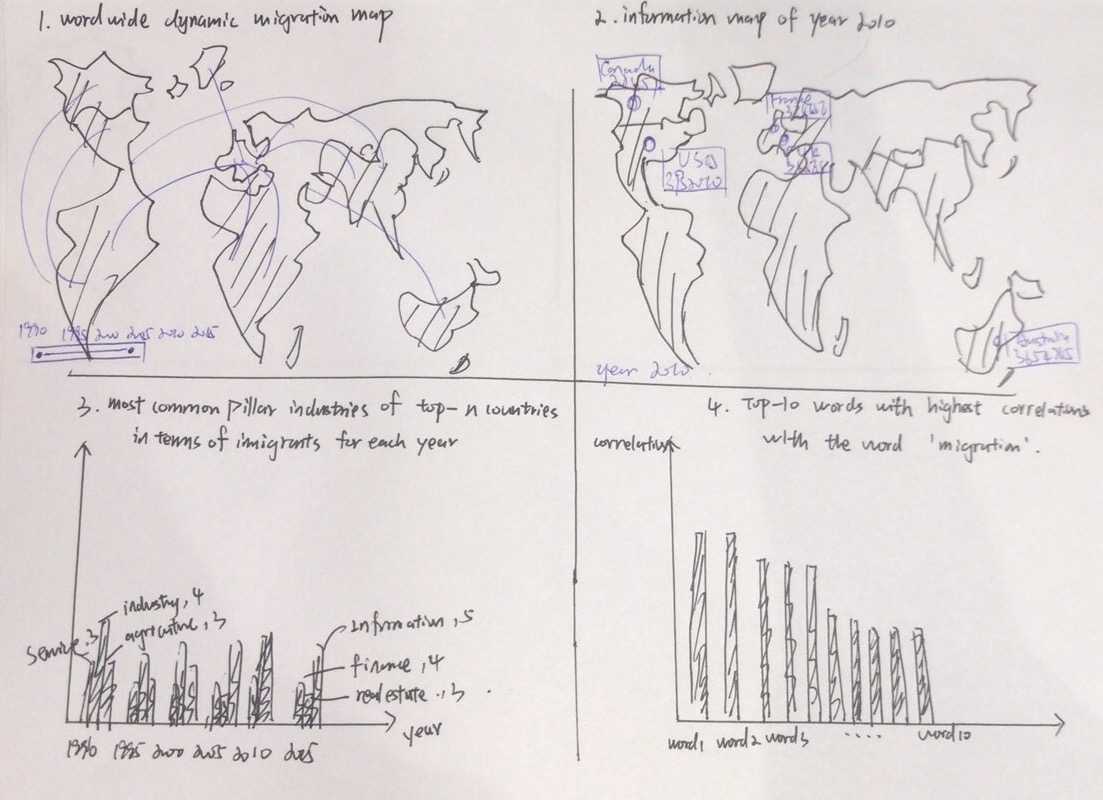 1. wordwide dynamic migration map
1990 1995 2000 2005 2010 2015
2. information map of year 2010
Canada
France
USA
UK
Australia
year 2010.
3. most common pillar industries of top-n countries
in terms of imigrants for each year
service, 3
industry, 4
agriculture, 3
information, 5
finance, 4
real estate, 3
year
1990 1995 2000 2005 2010 2015
4. Top-10 words with highest correlations
with the word 'migration'.
correlation
word1 word2 word3 .... word10